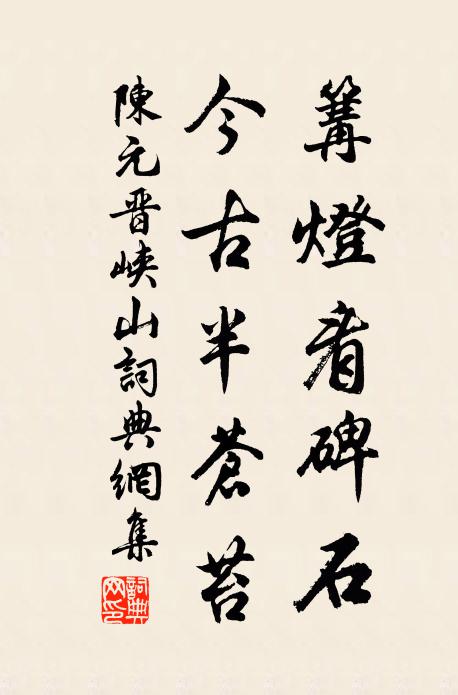 篝燈看碑石
今古半蒼苔
陳元晋峽山詞典網集
詞典網印